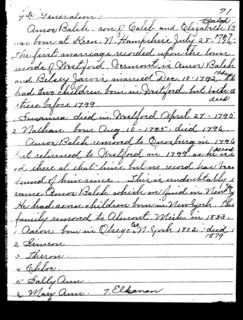 71
7th Generation:
Amos Balch, son of Caleb and Elizabeth B
was born at Keen, N. Hampshire July 25,
The first marriage recorded upon the town
records of Westford, Vermont is Amos Balch
and Betsey Jarvis married Dec. 10 - 1792. They
had two children born in Westford but both d
there before 1799.
Susannea died in Westford April 27 - 1795
2 Nathan born Aug. 10 - 1795, died 1796.
Amos Balch removed to Orensburg in 1796
returned to Westford in 1799 as he
there at that time but no record was
found of him since. This is undoubtably
same Amos Balch which we find in New
He had seven children born in New York. The
family removed to Almont, Mich. in 1833.
1 Aaron born in Otsego Co. N. York 1802; died
1879
2 Simeon
3 Theron
4 Chloe
5 Sally Ann
6 Mary Ann 7. Elkanan